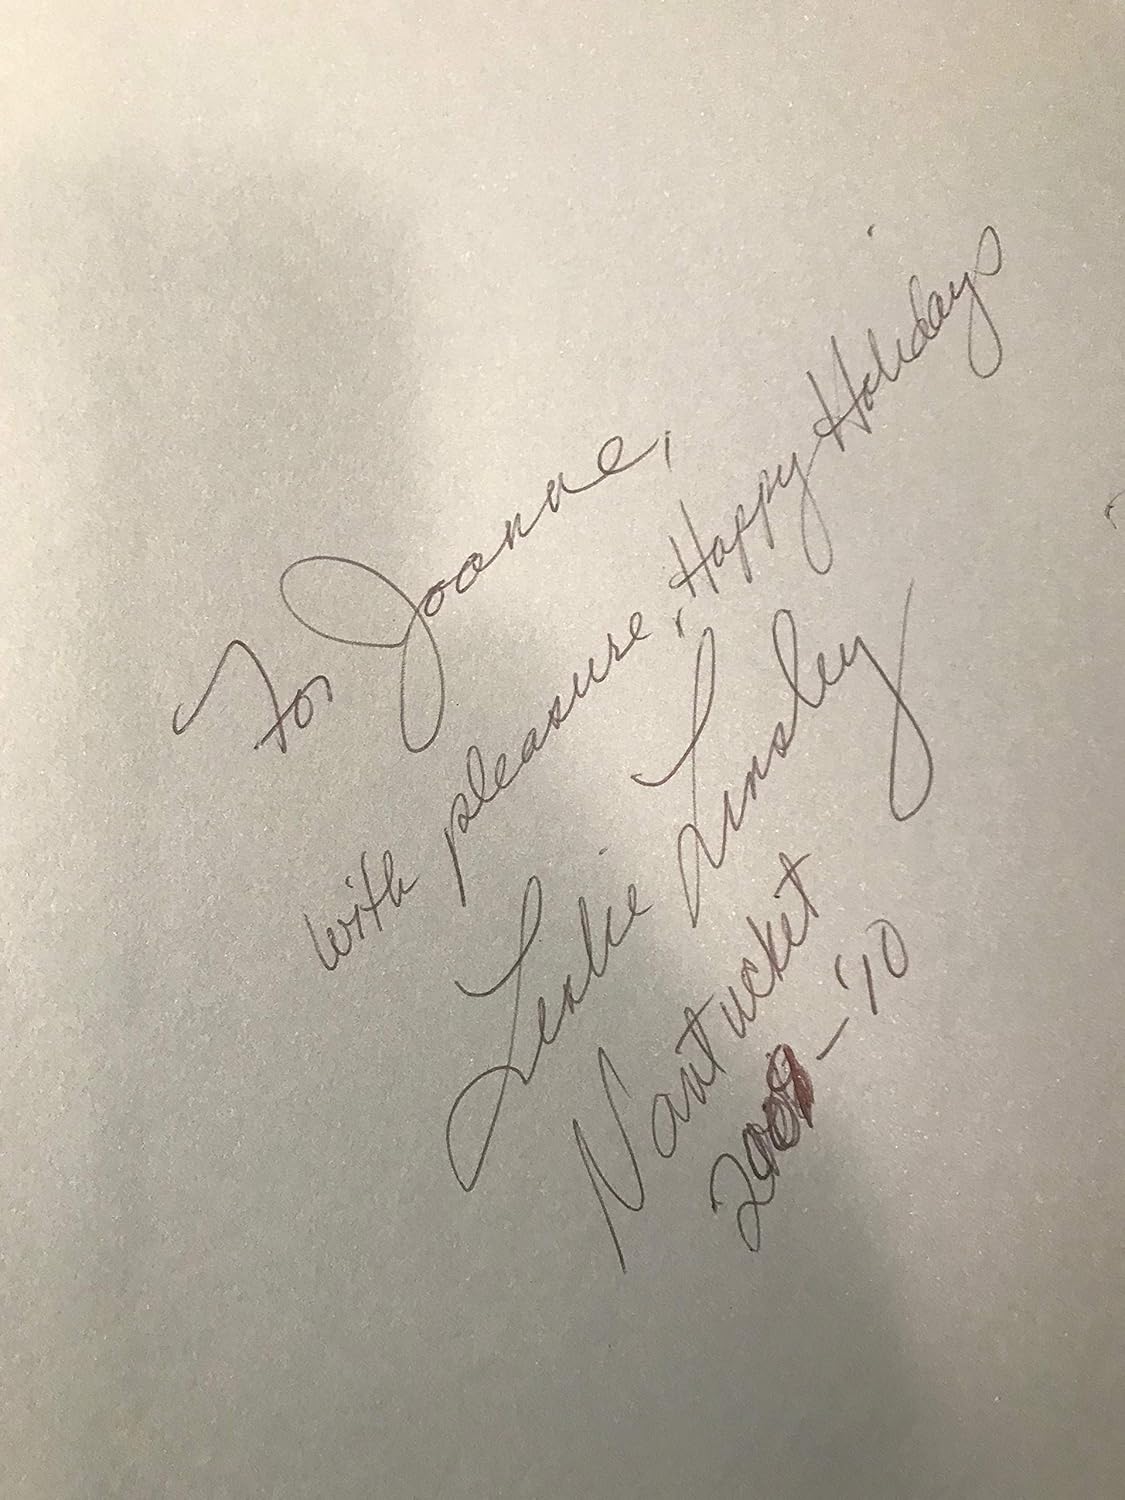 For Joanne,
with pleasure, Happy Holidays
Leslie Linsley
Nantucket
2009-'10